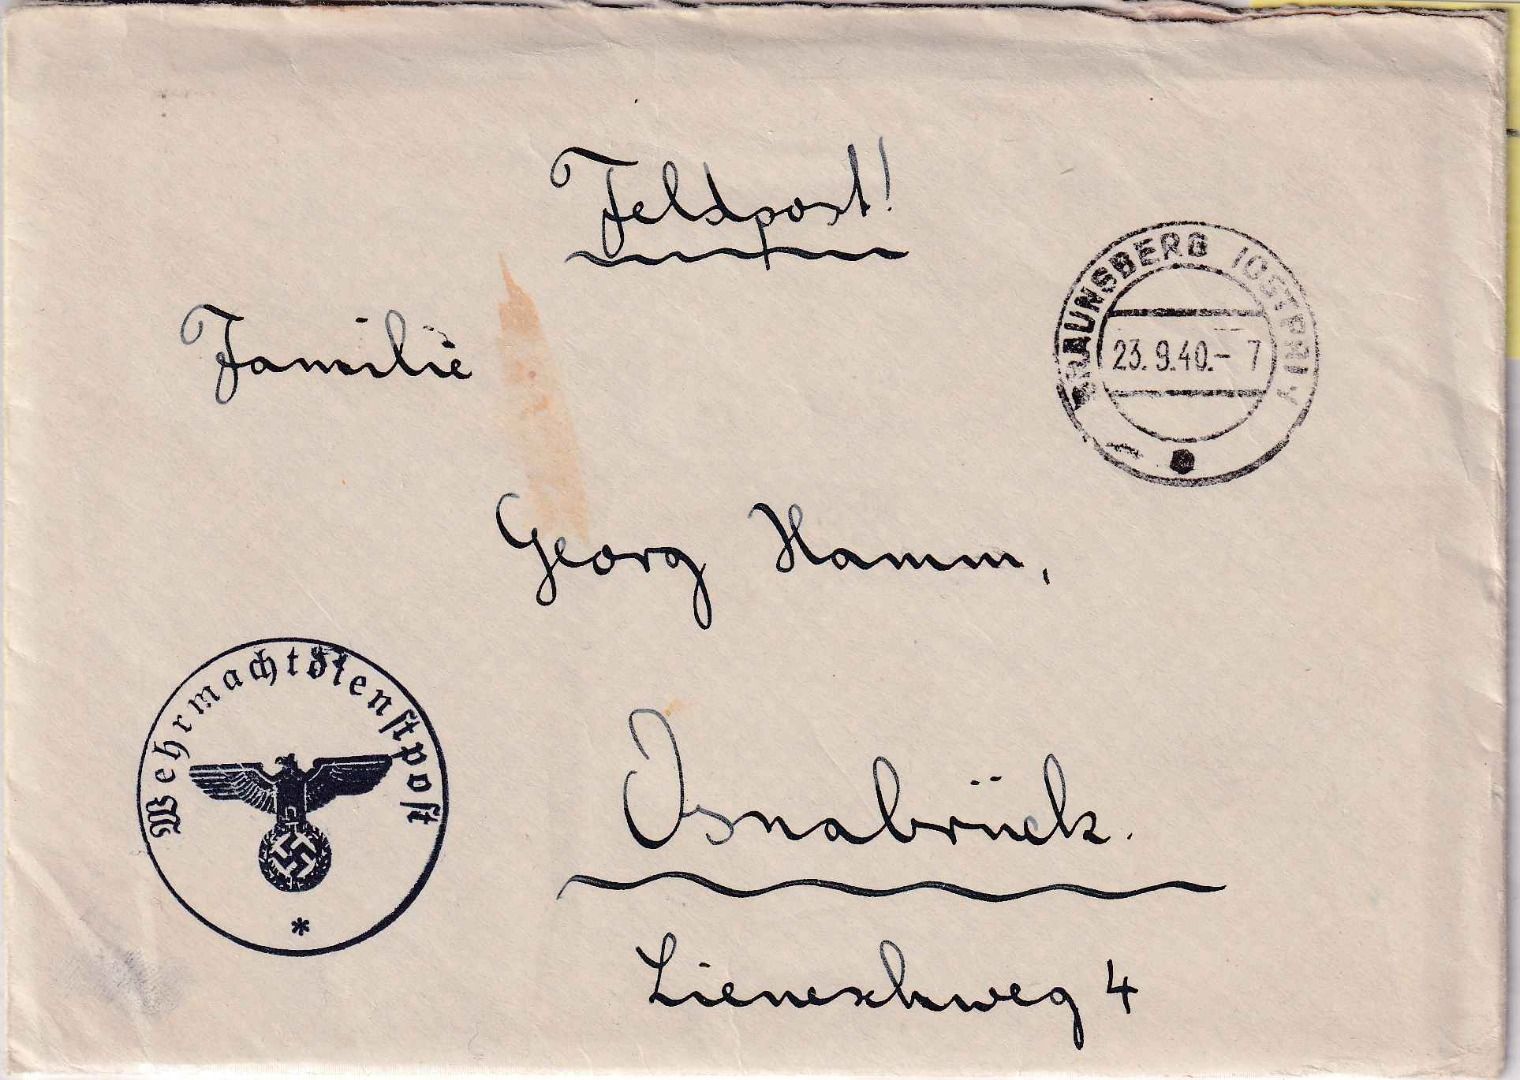 Feldpost!
BRAUNSBERG (OSTPR)
23.9.40.- 7
Familie
Georg Hamm,
Wehrmachtdienstpost
*
Osnabrück.
Lieneschweg 4